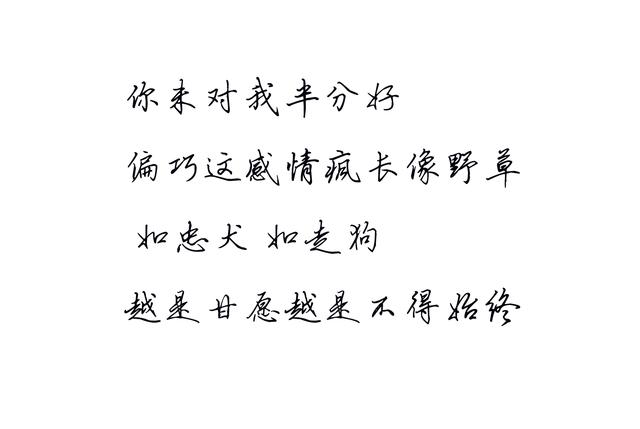 你未对我半分好
偏巧这感情疯长像野草
如忠犬 如走狗
越是甘愿越是不得始终